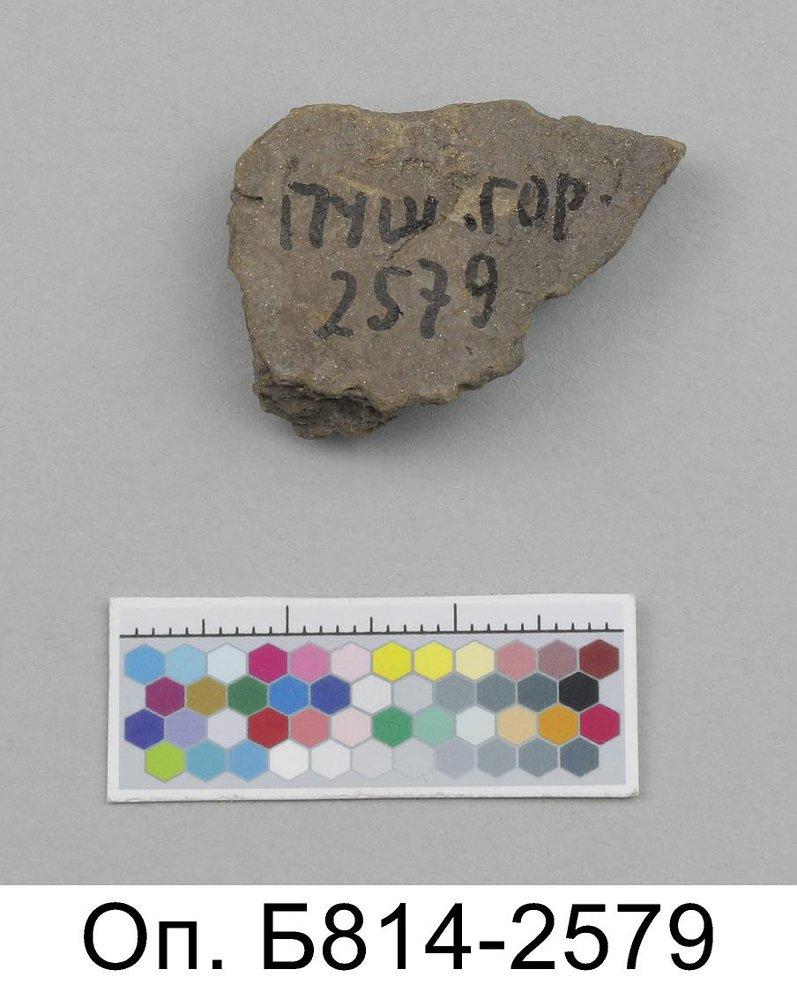 ПЧШ.ГОР.
2579
Оп. Б814-2579